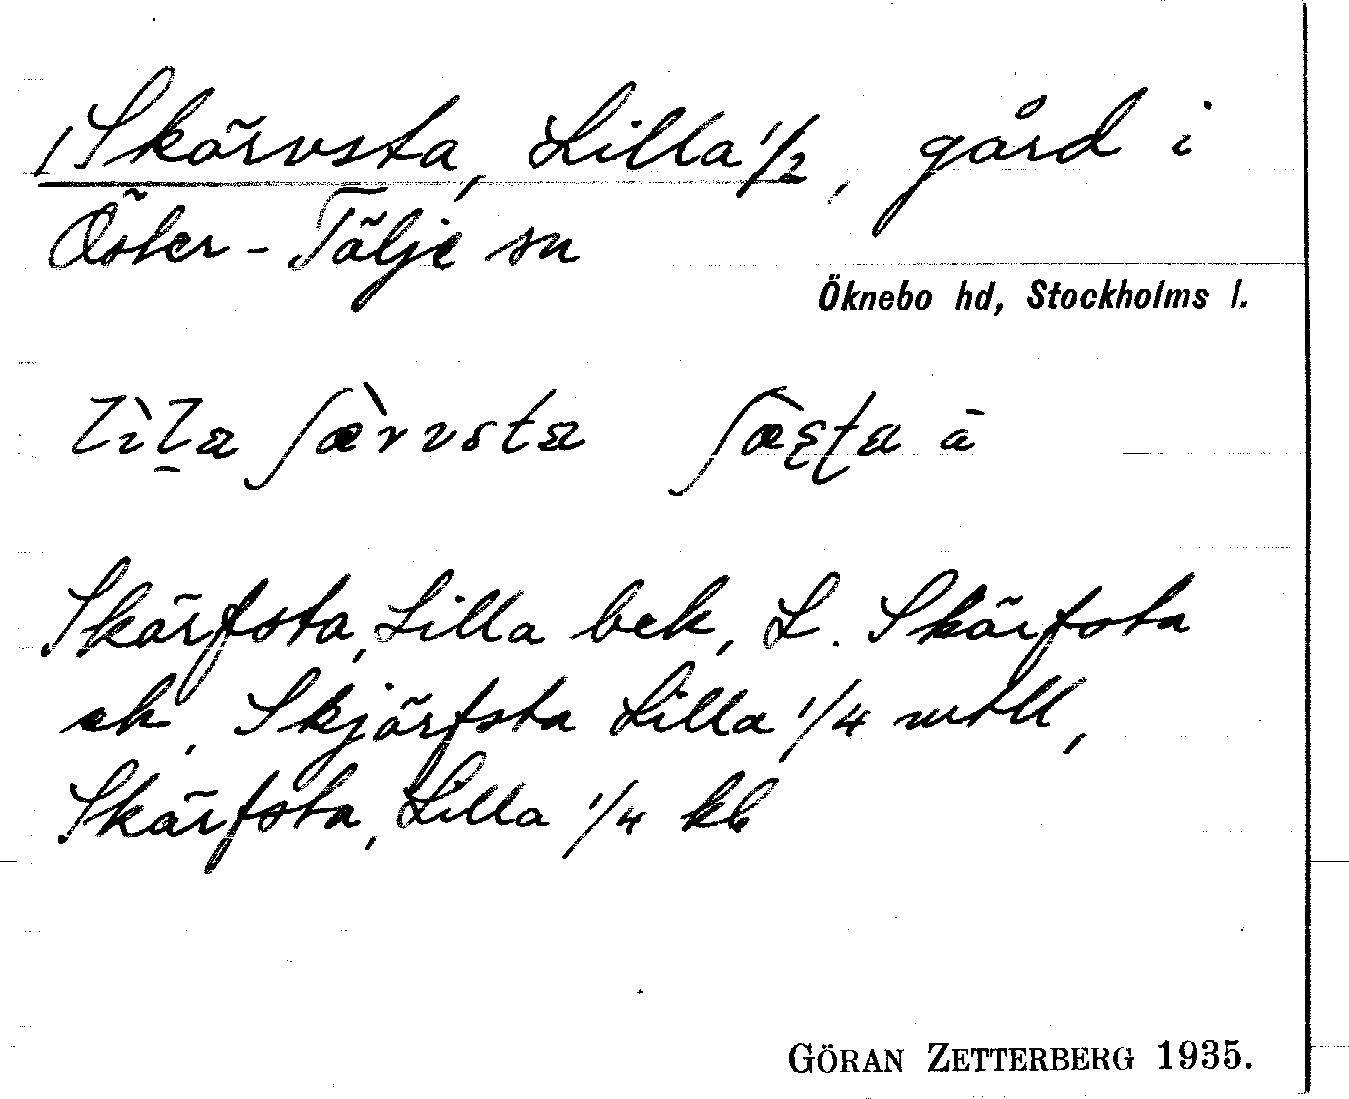 1 Skärvsta, Lilla 1/2, gård i
Öster-Tälje sn
Öknebo hd, Stockholms l.
lìla ʃæ̀rvsta ʃæʂʈa ā
Skärfsta, Lilla bek, L. Skärfsta
ek, Skjärfsta Lilla 1/4 mtll,
Skärfsta, Lilla 1/4 kb
GÖRAN ZETTERBERG 1935.